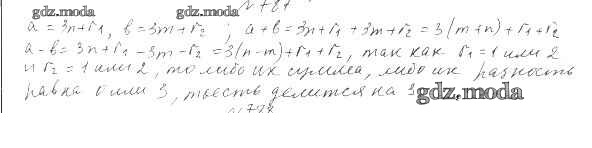 gdz.moda gdz.moda
a = 3n+r₁, b = 3m+r₂ ; a+b = 3n+r₁+3m+r₂ = 3(m+n)+r₁+r₂
a-b = 3n+r₁-3m-r₂ = 3(n-m)+r₁+r₂, так как r₁ = 1 или 2
и r₂ = 1 или 2, то либо их сумма, либо их разность
равна 0 или 3, то есть делится на 3 gdz.moda